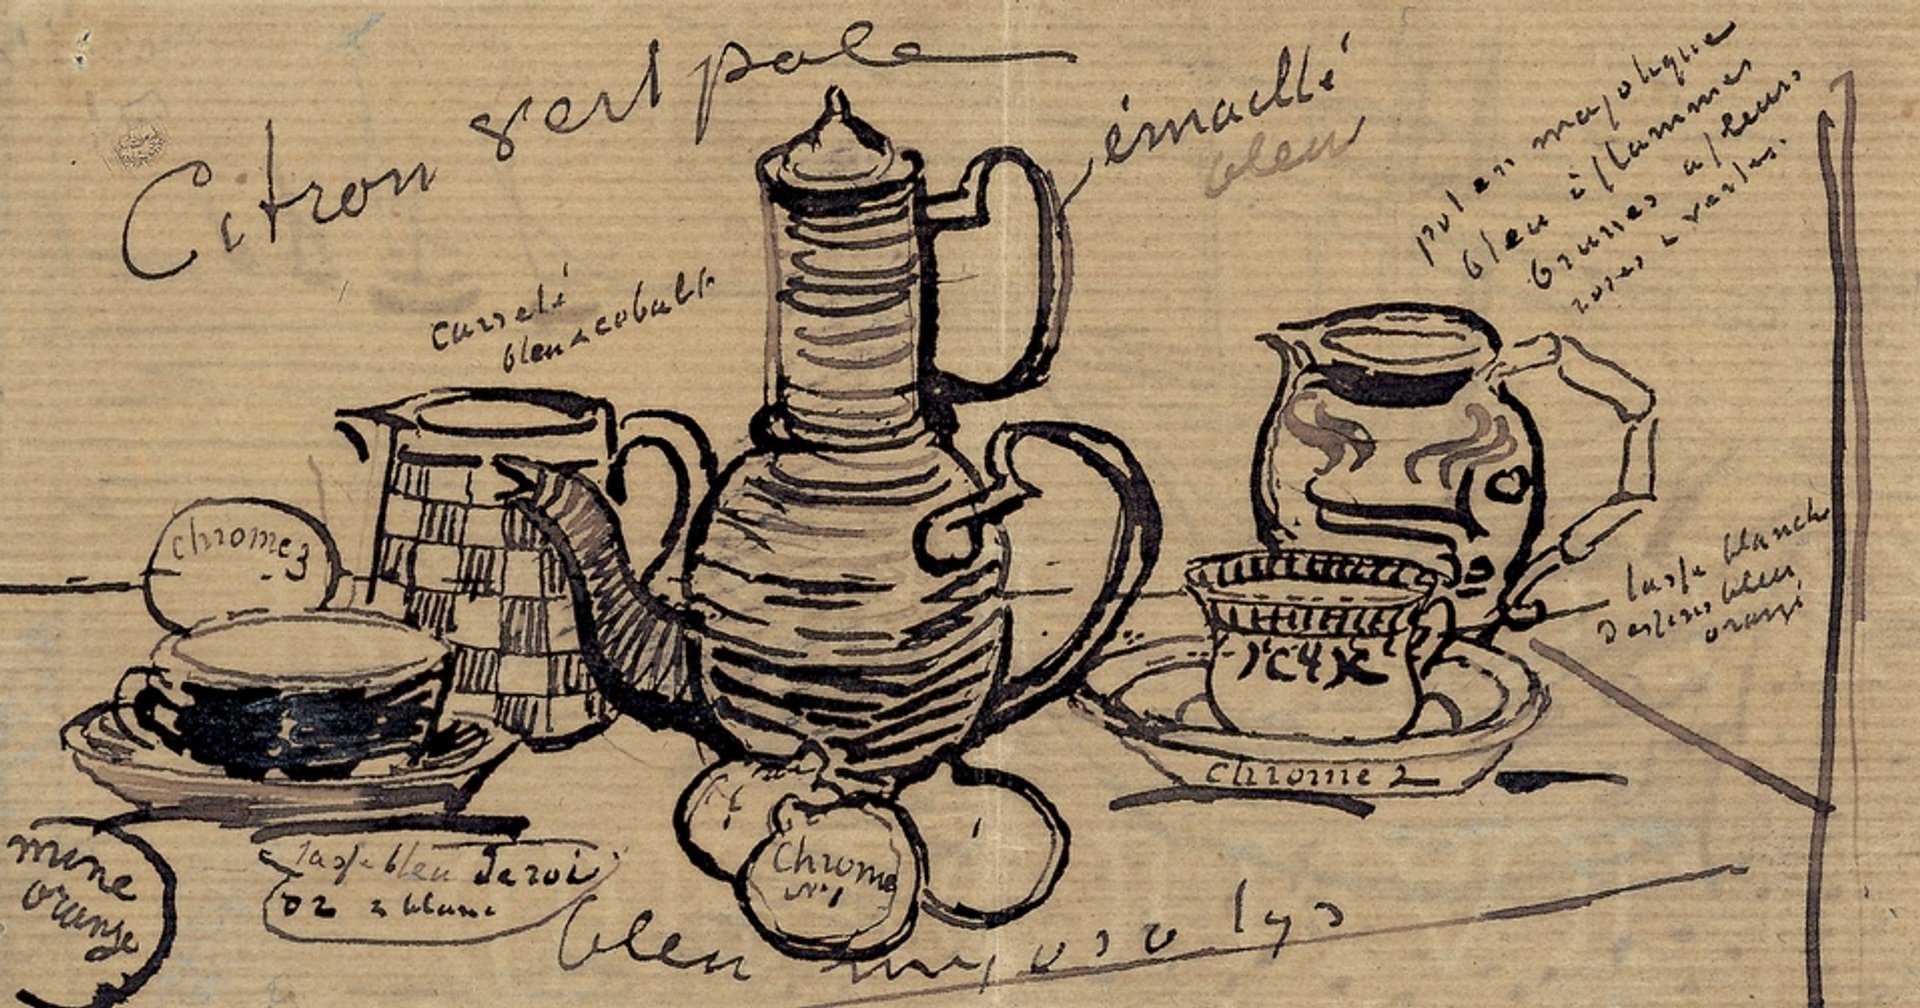 Citron vert pale
émaillé
bleu
pot en majolique
bleu à flammes
brunes a fleurs
roses & vertes.
carrelé
bleu de cobalt
chrome 3
tasse blanche
dessins bleu
orangé
chrome 2
mine
orange
tasse bleu de roi
or & blanc
Chrome
N°1
bleu myosotys